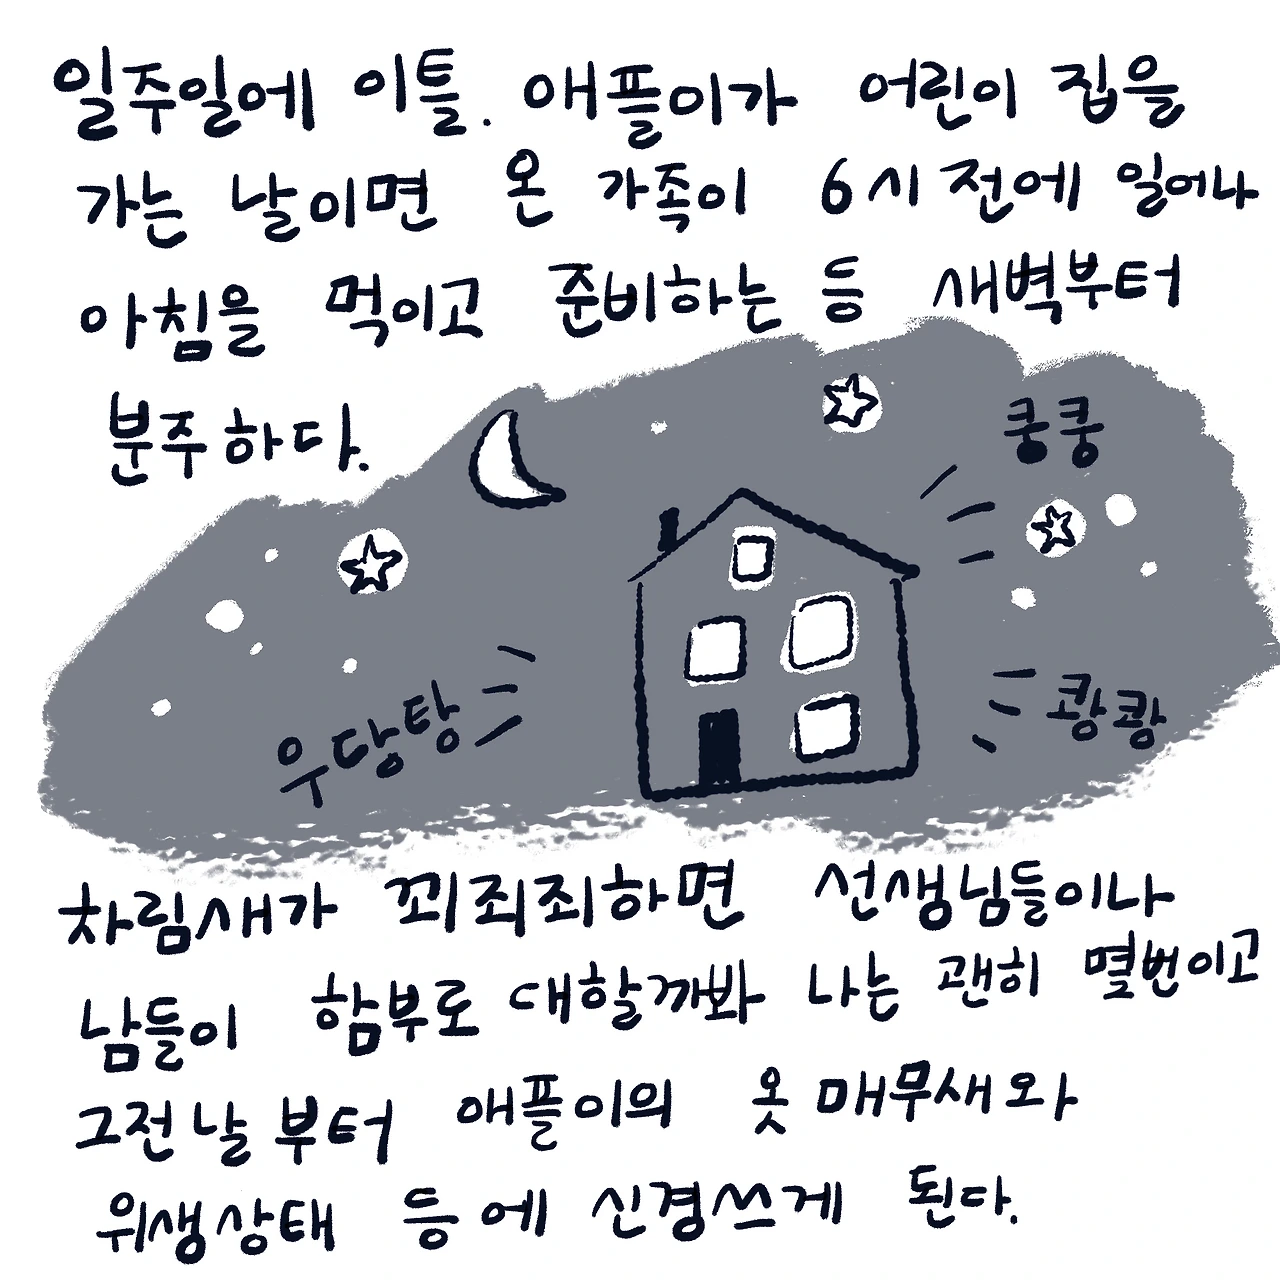 일주일에 이틀. 애플이가 어린이 집을
가는 날이면 온 가족이 6시 전에 일어나
아침을 먹이고 준비하는 등 새벽부터
분주하다.
쿵쿵
우당탕
쾅쾅
차림새가 꾀죄죄하면 선생님들이나
남들이 함부로 대할까봐 나는 괜히 몇번이고
그전날 부터 애플이의 옷 매무새와
위생상태 등에 신경쓰게 된다.